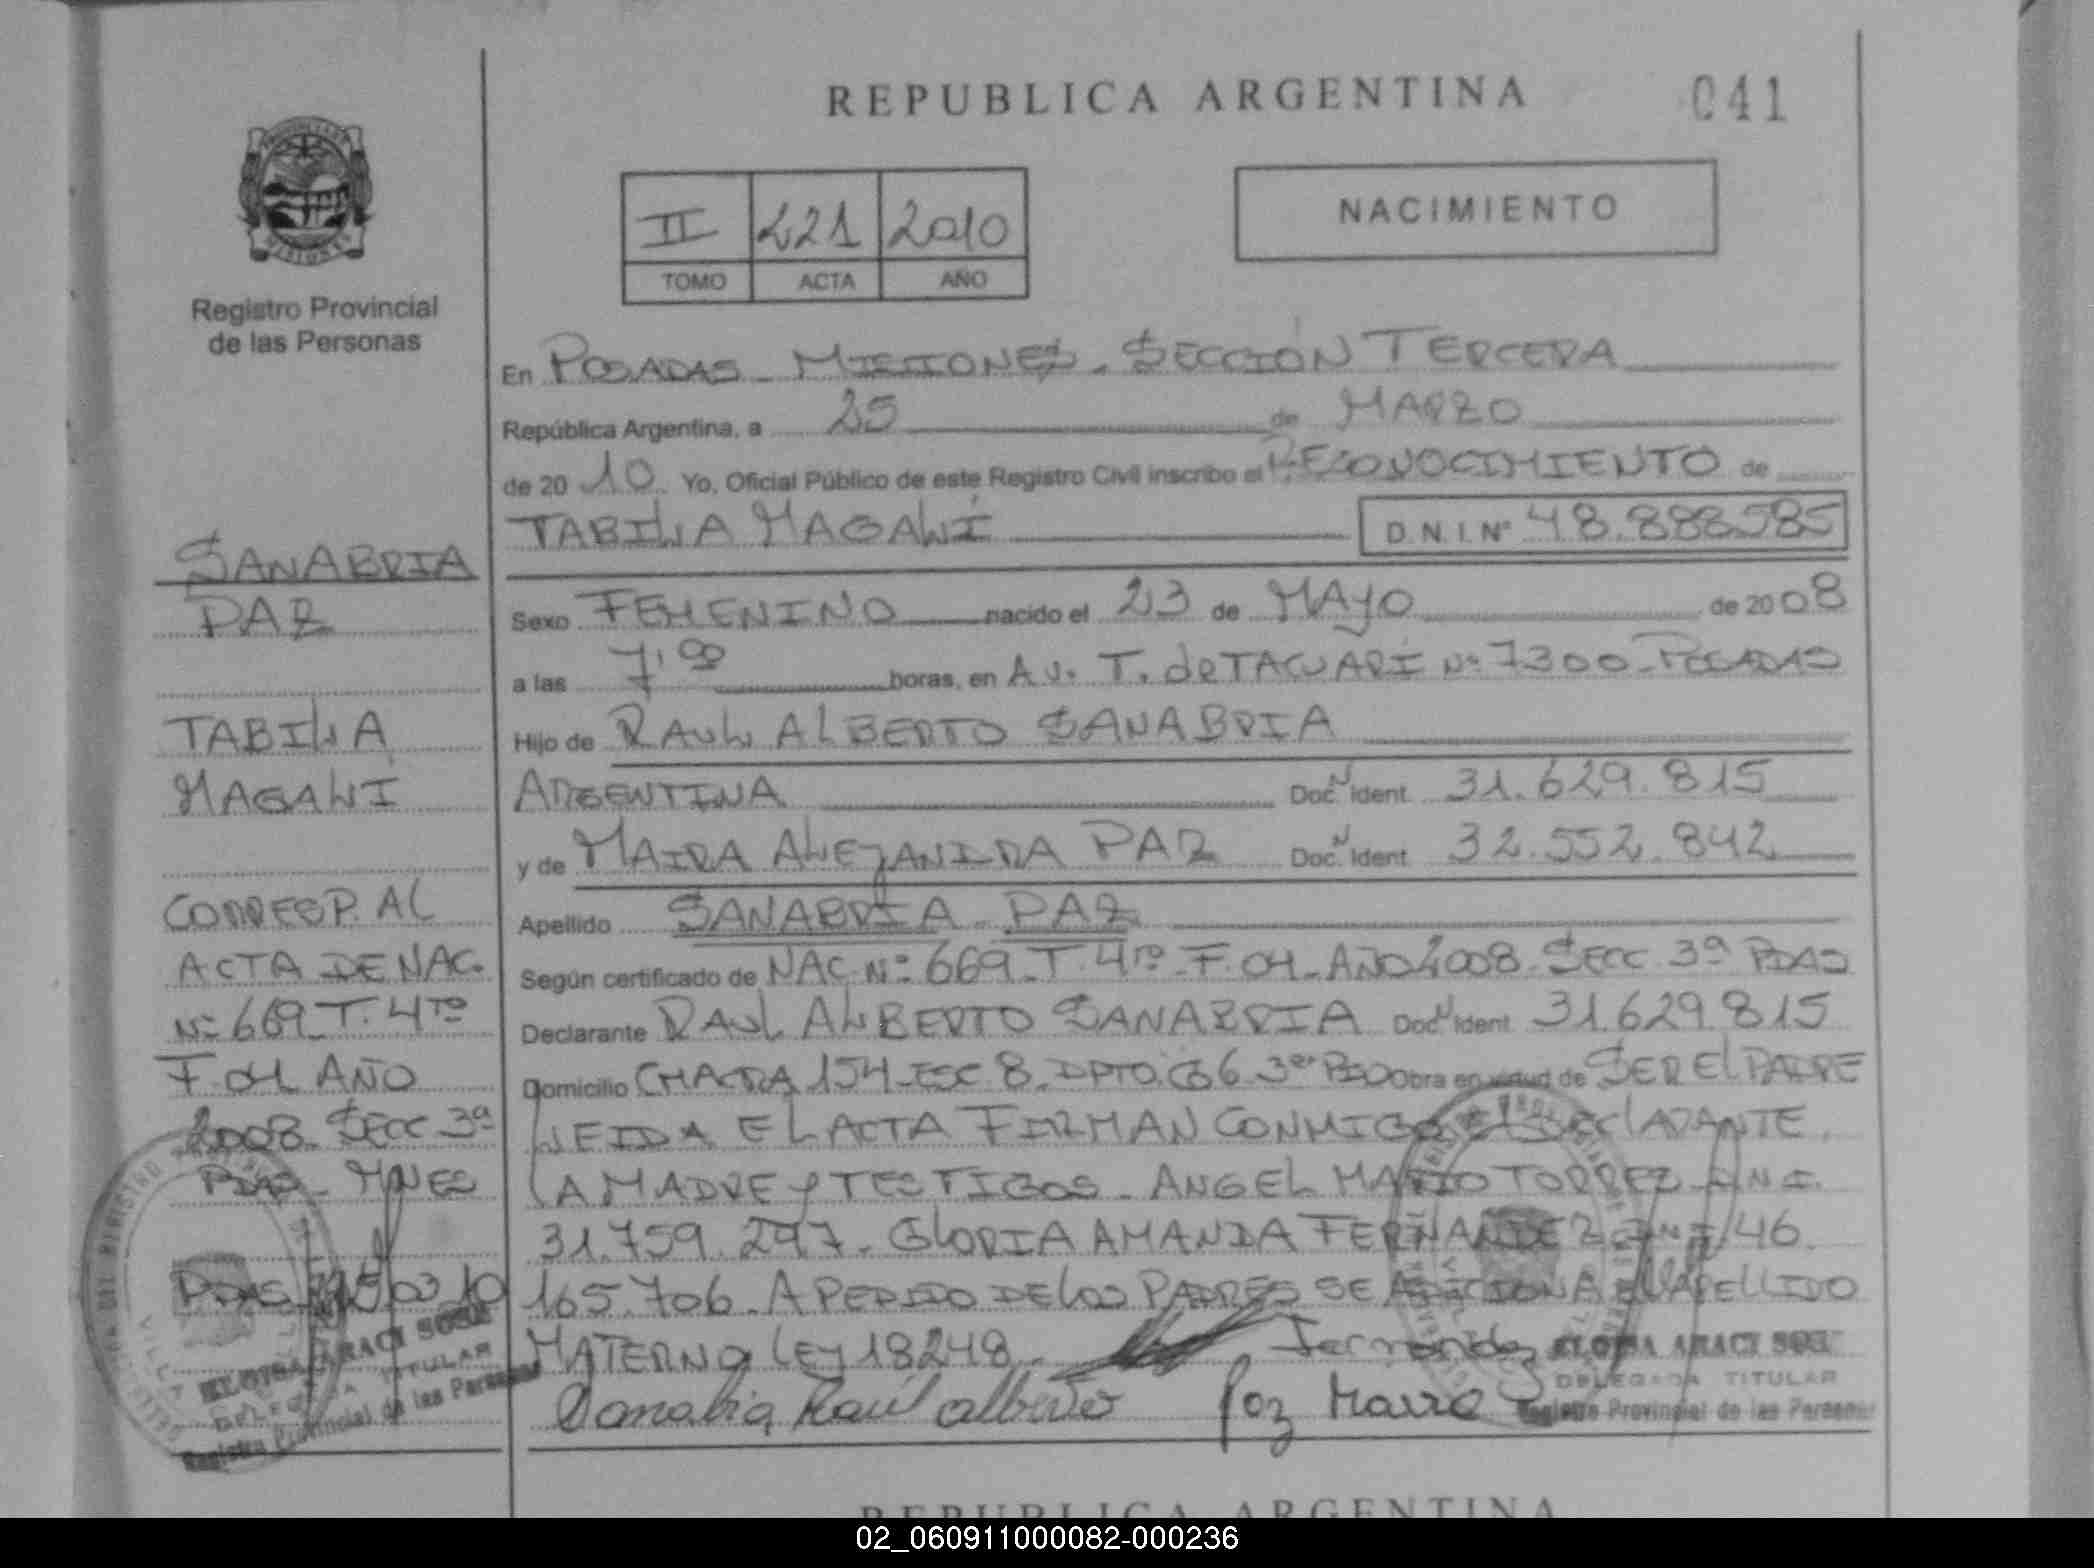 REPUBLICA ARGENTINA
041
II 221 2010
TOMO ACTA AÑO
NACIMIENTO
Registro Provincial
de las Personas
En POSADAS - MISIONES. SECCIÓN TERCERA
República Argentina, a 25 de MARZO
de 2010. Yo, Oficial Público de este Registro Civil inscribo el RECONOCIMIENTO de
TABILA MAGALÍ D.N.I. Nº 48.888585
Sexo FEMENINO nacido el 23 de MAYO de 2008
a las 7,00 horas, en Av. T. de TACUARÍ Nº 7300 - POSADAS
Hijo de RAUL ALBERTO SANABRIA
ARGENTINA Doc. Ident. 31.629.815
y de MAIRA ALEJANDRA PAZ Doc. Ident. 32.552.842
Apellido SANABRIA - PAZ
Según certificado de NAC. Nº 669 - T. 4to - F. 04 - AÑO 2008 - SECC 3ª PDAS
Declarante RAUL ALBERTO SANABRIA Doc. Ident. 31.629.815
Domicilio CHACRA 154 - ESC 8 - DPTO. 3er PISO Obra en virtud de SER EL PADRE
LEIDA EL ACTA FIRMAN CONMIGO EL DECLARANTE,
LA MADRE y TESTIGOS - ANGEL MARIO TORREZ D.N.I.
31.759.297 - GLORIA AMANDA FERNANDEZ D.N.I. 46.
165.706 - A PEDIDO DE LOS PADRES SE ADICIONA EL APELLIDO
MATERNO LEY 18248.
Sanabria Raúl alberto Paz Maira
ELOISA ARACI SOSA
DELEGADA TITULAR
Registro Provincial de las Personas
SANABRIA
PAZ
TABILA
MAGALI
CORRESP. AL
ACTA DE NAC.
Nº 669 - T. 4to
F. 04 AÑO
2008 - SECC 3ª
PDAS - MNES
PDAS 25/03/10
ELOISA ARACI SOSA
DELEGADA TITULAR
Registro Provincial de las Personas
REPUBLICA ARGENTINA
02_060911000082-000236